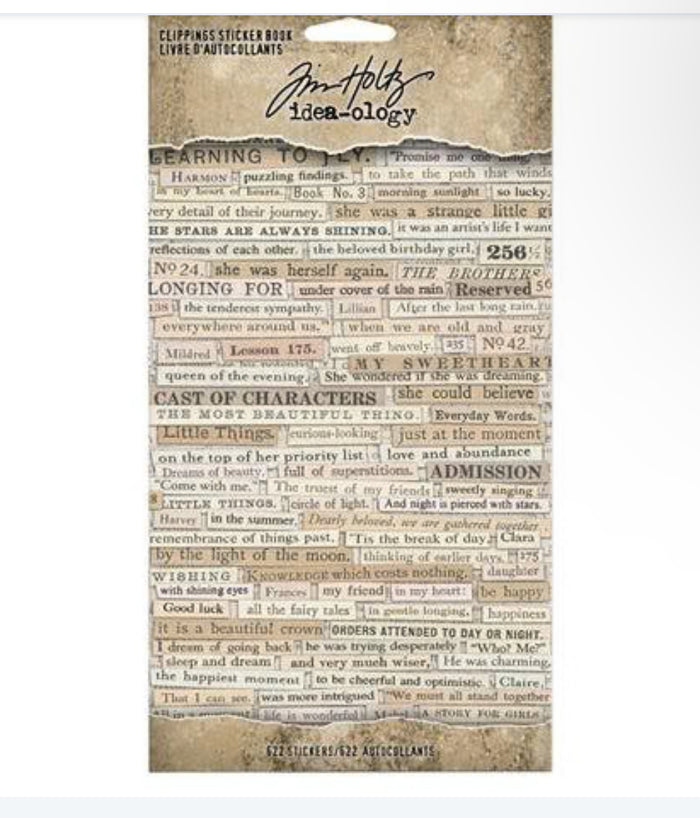 CLIPPINGS STICKER BOOK
LIVRE D'AUTOCOLLANTS
Tim Holtz
idea-ology
LEARNING TO FLY. "Promise me one thing,
HARMON puzzling findings. to take the path that winds
in my heart of hearts. Book No. 3 morning sunlight so lucky.
very detail of their journey. she was a strange little gi
HE STARS ARE ALWAYS SHINING. it was an artist's life I want
reflections of each other. the beloved birthday girl. 256½
Nº 24. she was herself again. THE BROTHERS
LONGING FOR under cover of the rain Reserved 56
138 the tenderest sympathy. Lillian After the last long rain.
everywhere around us." when we are old and gray
Mildred Lesson 175. went off bravely. 235 Nº 42.
MY SWEETHEART
queen of the evening. She wondered if she was dreaming.
CAST OF CHARACTERS she could believe
THE MOST BEAUTIFUL THING. Everyday Words.
Little Things. curious-looking just at the moment
on the top of her priority list love and abundance
Dreams of beauty. full of superstitions. ADMISSION
"Come with me." The truest of my friends sweetly singing
8 LITTLE THINGS. circle of light. And night is pierced with stars.
Harvey in the summer. Dearly beloved, we are gathered together
remembrance of things past. 'Tis the break of day. Clara
by the light of the moon. thinking of earlier days. 175
WISHING KNOWLEDGE which costs nothing. daughter
with shining eyes Frances my friend in my heart: be happy
Good luck all the fairy tales in gentle longing. happiness
it is a beautiful crown ORDERS ATTENDED TO DAY OR NIGHT.
I dream of going back he was trying desperately "Who? Me?"
sleep and dream and very much wiser, He was charming,
the happiest moment to be cheerful and optimistic. Claire,
That I can see. was more intrigued "We must all stand together
all in a moment life is wonderful Mabel A STORY FOR GIRLS
622 STICKERS/622 AUTOCOLLANTS